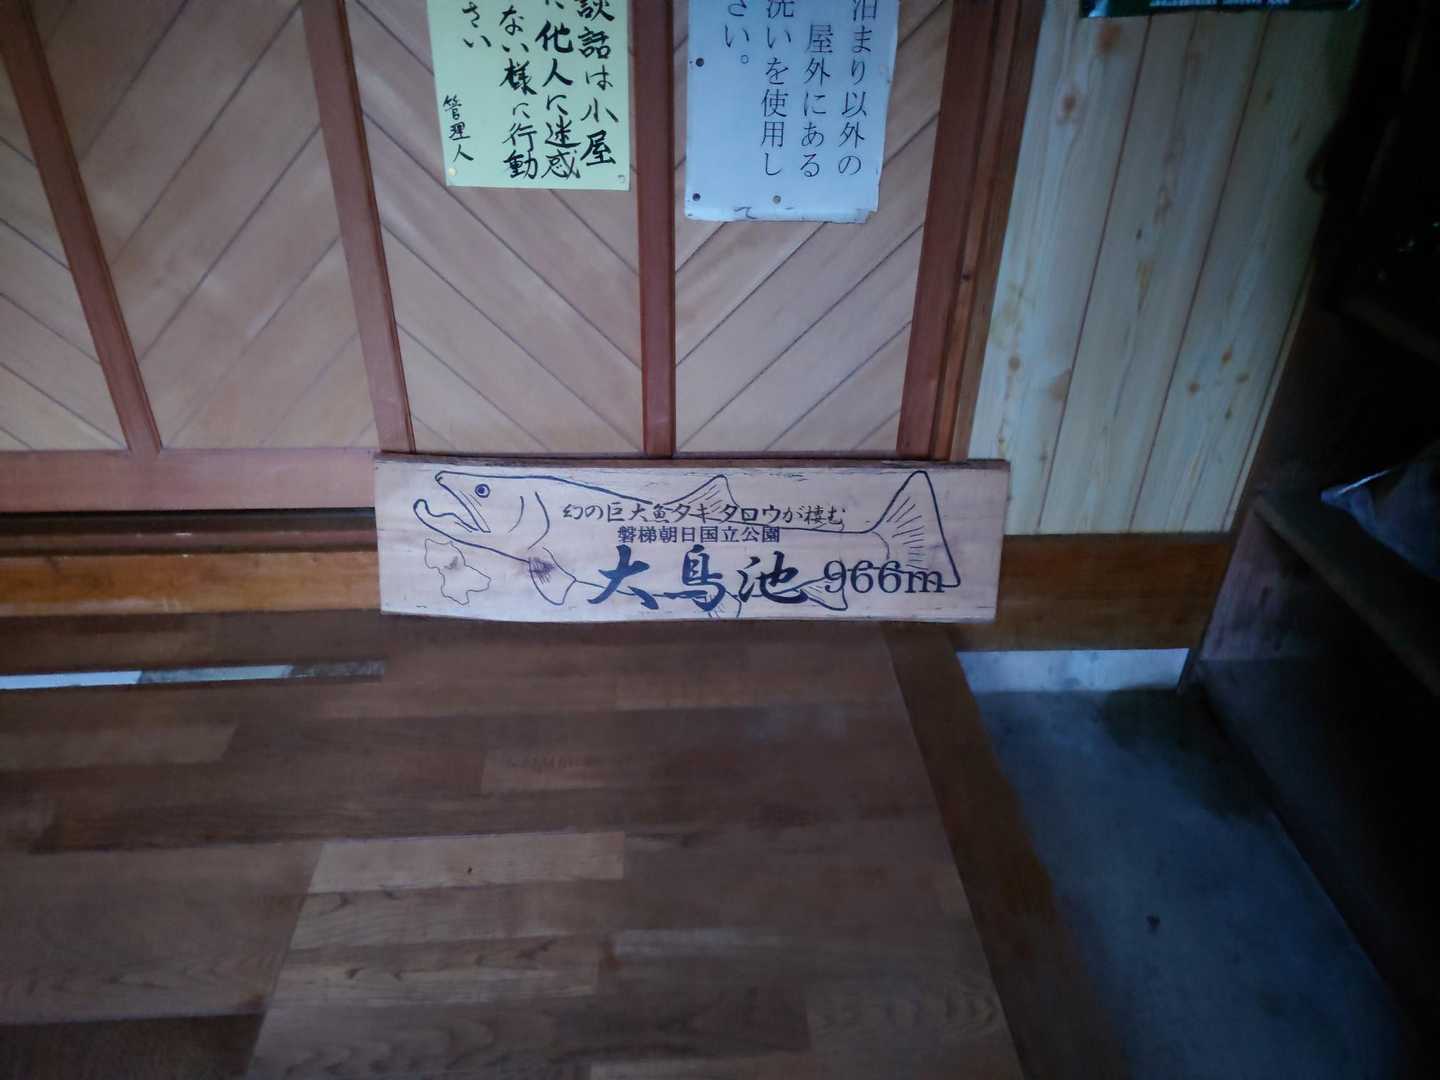 談話は小屋
に他人に迷惑
ない様に行動
さい
管理人
泊まり以外の
屋外にある
洗いを使用し
て
さい。
幻の巨大魚タキタロウが棲む
磐梯朝日国立公園
大鳥池 966m